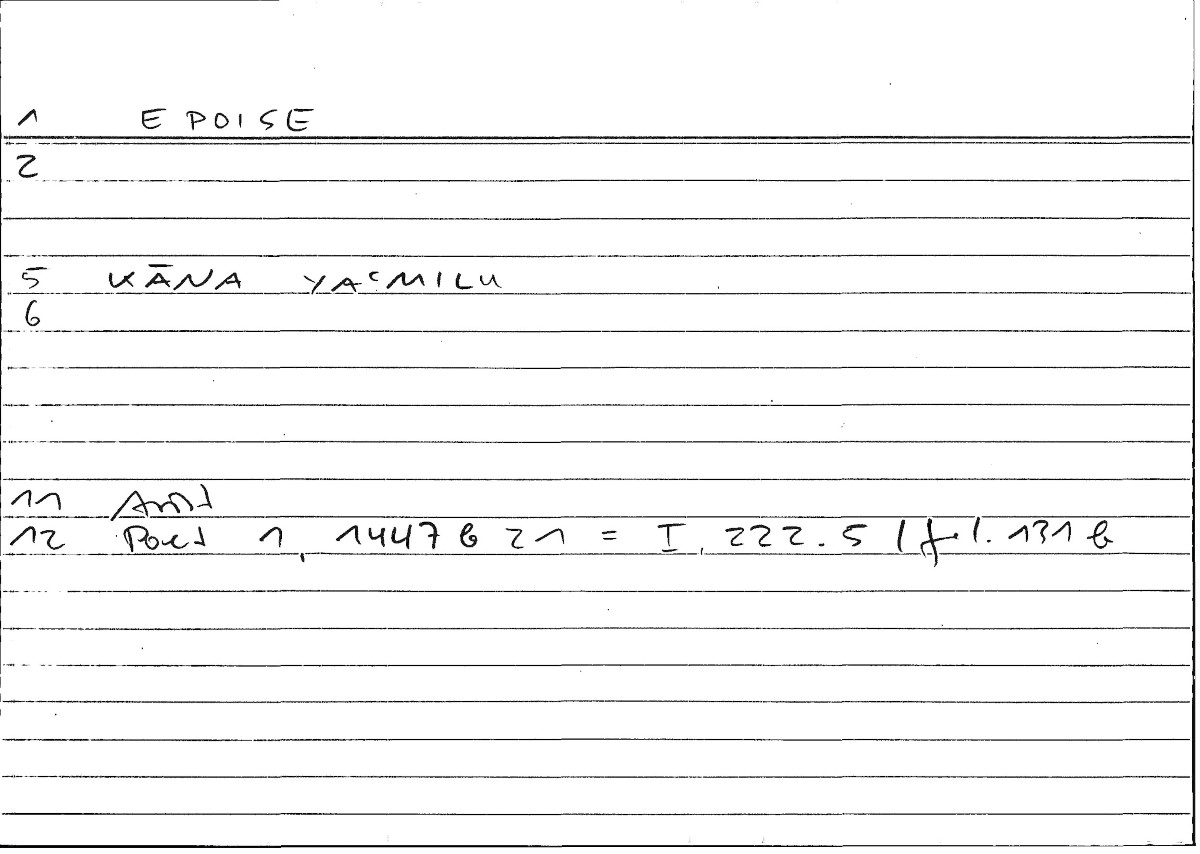 1 EPOISE
2
5 KĀNA YAʿMILU
6
11 Arist
12 Poet 1, 1447 b 21 = I, 222.5 / fol. 131 b